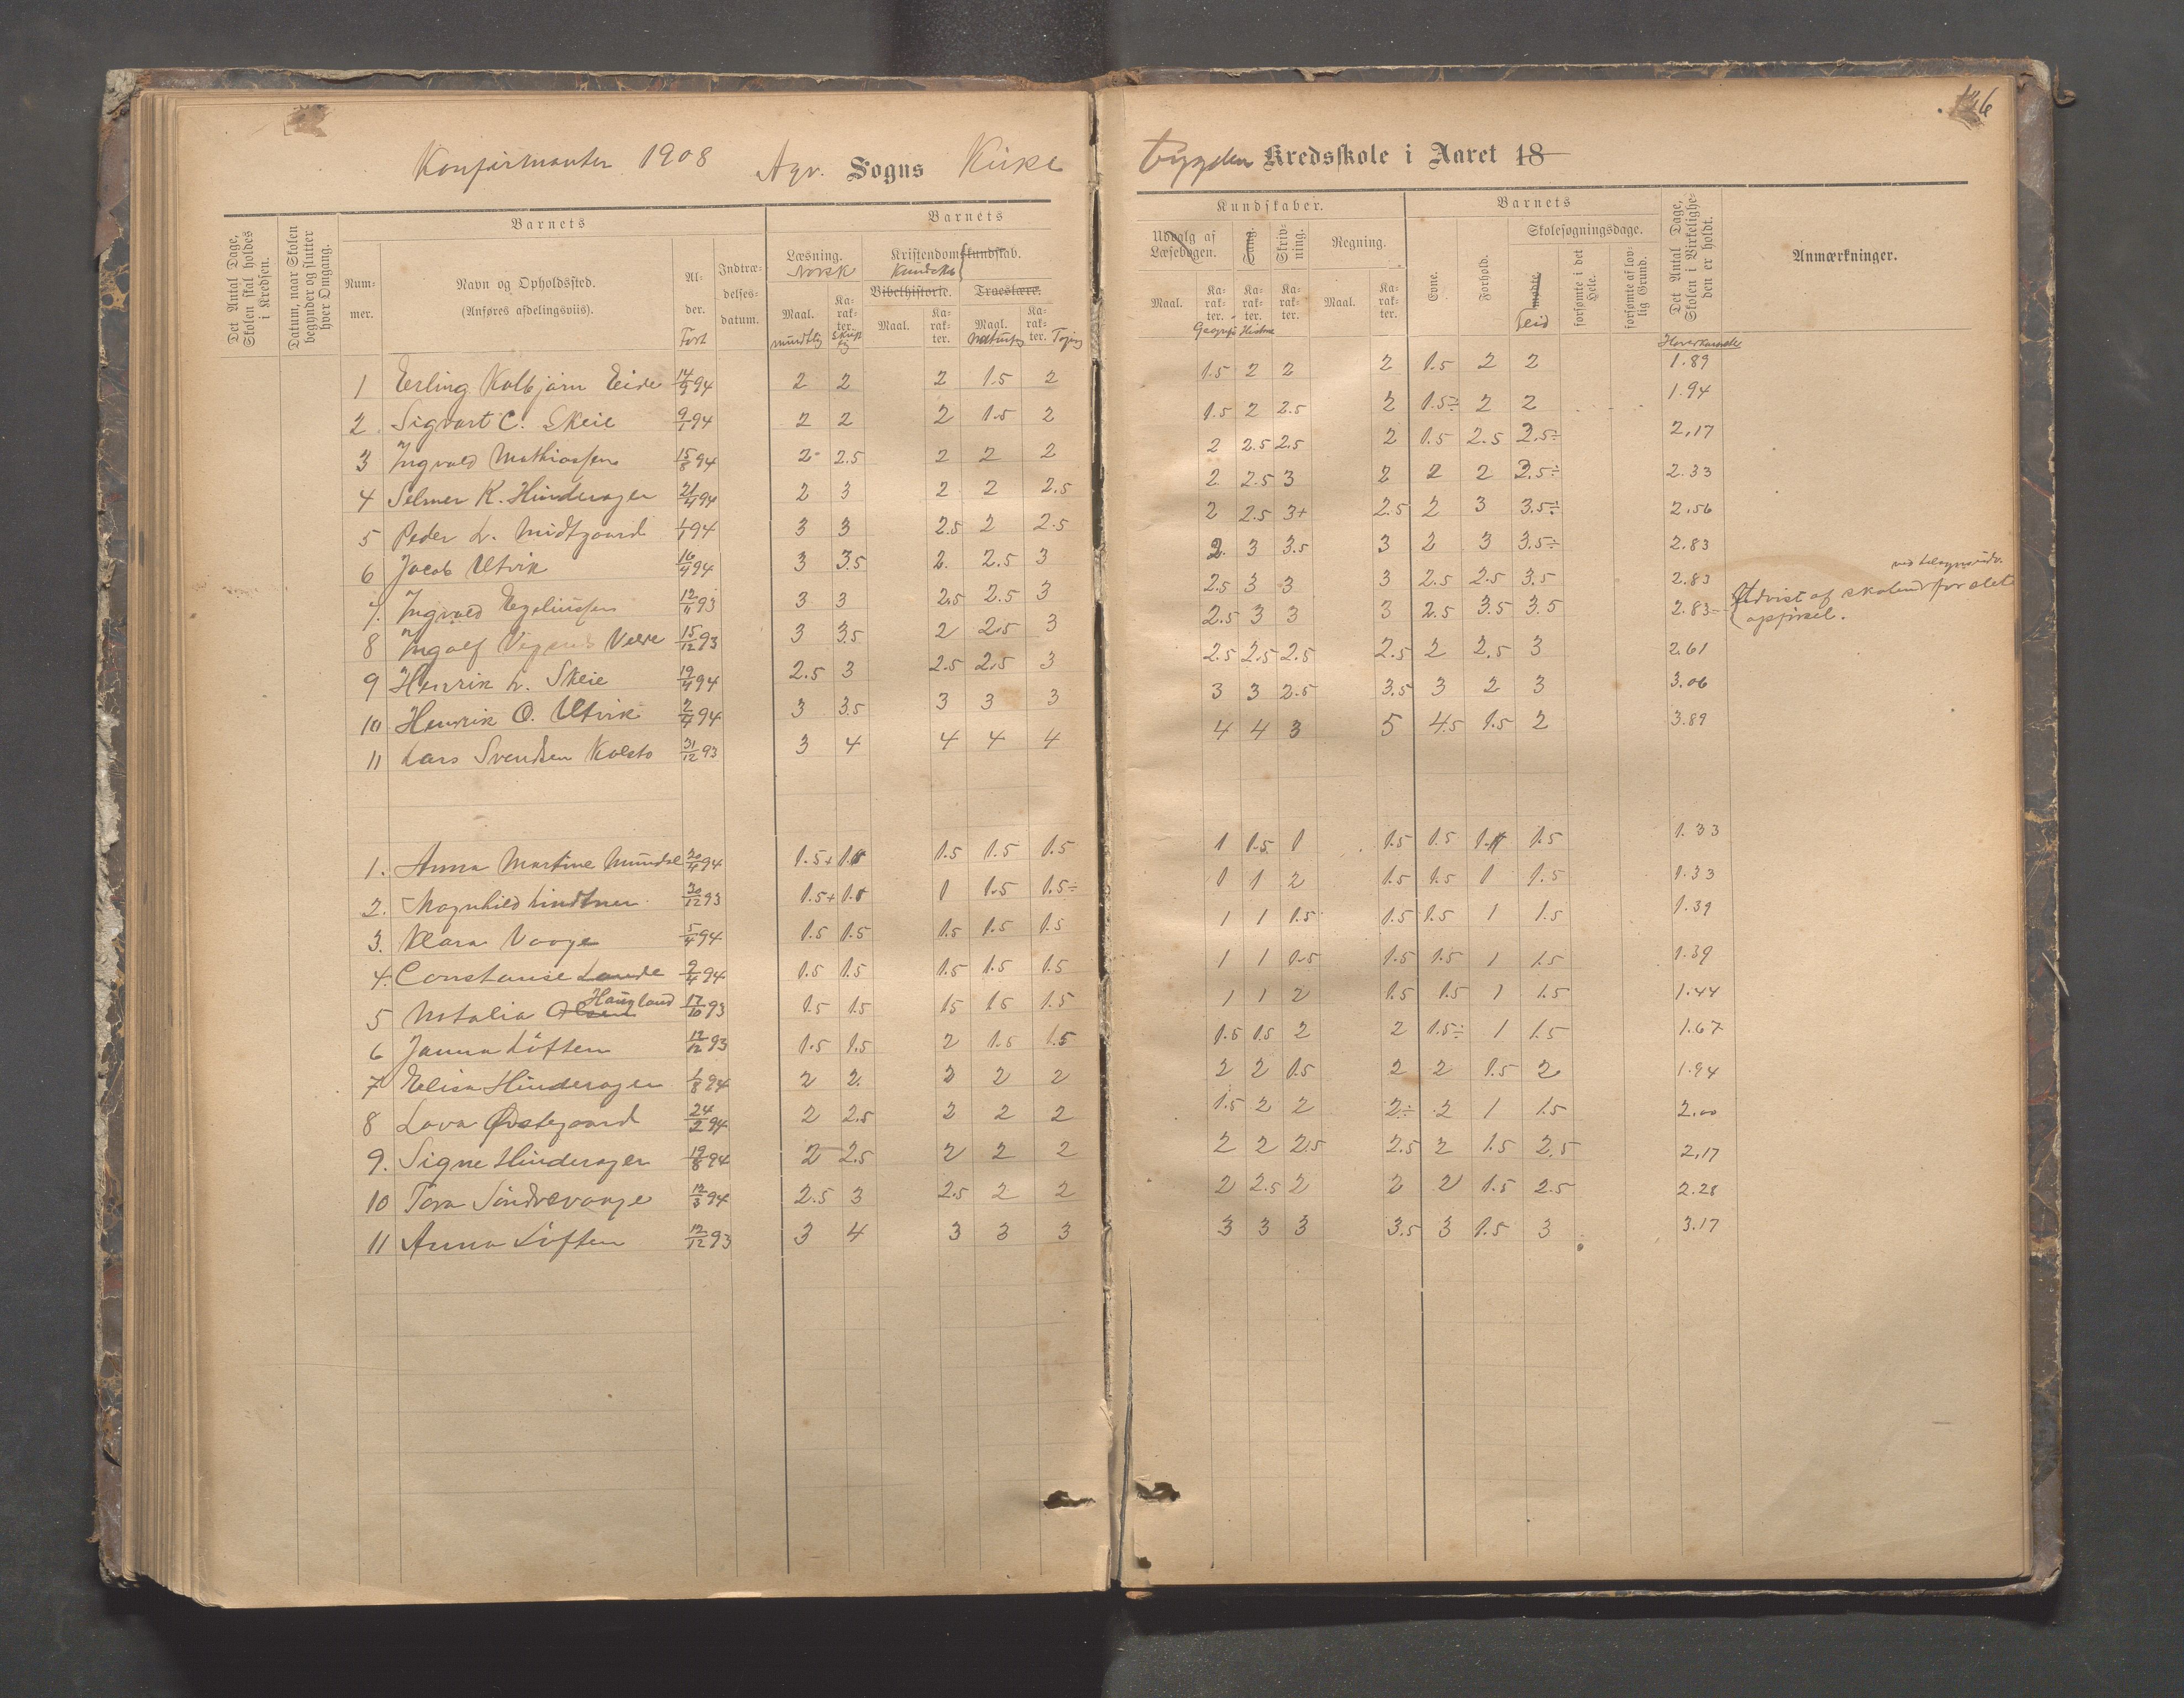 126
Konfirmanter 1908 Agv. Sogns Kirke
bygden Kredsskole i Aaret 18
Det Antal Dage, Skolen skal holdes i Kredsen.
Datum, naar Skolen begynder og slutter hver Omgang.
Barnets
Nummer.
Navn og Opholdssted.
(Anføres afdelingsviis).
Alder.
Født
Indtrædelsesdatum.
Barnets
Læsning.
Norsk
Maal.
mundtlig
Karakter.
Skriftlig
Kristendomskundskab.
Kundskab
Bibelhistorie.
Maal.
Karakter.
Troeslære.
Maal.
Naturfag
Karakter.
Tegning
Kundskaber.
Udvalg af Læsebogen.
Maal.
Karakter.
Geografi
Sang.
Karakter.
Historie
Skrivning.
Karakter.
Regning.
Maal.
Karakter.
Barnets
Evne.
Forhold.
Skolesøgningsdage.
mødte
Flid
forsømte i det Hele.
forsømte af lovlig Grund.
Det Antal Dage, Skolen i Virkeligheden er holdt.
Hovedkarakter
Anmærkninger.
1 Erling Kolbjørn Eide 14/9 94 2 2 2 1.5 2 1.5 2 2 2 1.5 2 2 1.89
2 Sigvart C. Skeie 9/1 94 2 2 2 1.5 2 1.5 2 2.5 2 1.5÷ 2 2 1.94
3 Ingvald Mathiassen 15/8 94 2 2.5 2 2 2 2 2.5 2.5 2 1.5 2.5 2.5÷ 2.17
4 Selmer K. Hinderager 21/4 94 2 3 2 2 2.5 2 2.5 3 2 2 2 2.5÷ 2.33
5 Peder L. Midtgaard 1/1 94 3 3 2.5 2 2.5 2 2.5 3+ 2.5 2 3 3.5÷ 2.56
6 Jacob Utvik 16/4 94 3 3.5 2. 2.5 3 2. 3 3.5 3 2 3 3.5÷ 2.83
7. Ingvald Egeliussen 12/11 93 3 3 2.5 2.5 3 2.5 3 3 3 2.5 2.5 3.5 2.83
8 Ingolf Vignes Velde 15/12 93 3 3.5 2 2.5 3 2.5 3 3 3 2.5 3.5 3.5 2.83 Udvist af skolen for slet opførsel.
9 Henrik L. Skeie 19/4 94 2.5 3 2.5 2.5 3 2.5 2.5 2.5 2.5 2 2.5 3 2.61
10 Henrik O. Utvik 2/4 94 3 3.5 3 3 3 3 3 2.5 3.5 3 2 3 3.06
11 Lars Svendsen Kolstø 31/12 93 3 4 4 4 4 4 4 3 5 4.5 1.5 2 3.89
1. Anna Martine Mundal 20/4 94 1.5+ 1.5 1.5 1.5 1.5 1 1.5 1 1.5 1.5 1 1.5 1.33
2. Magnhild Lindtner 30/12 93 1.5+ 1.5 1 1.5 1.5÷ 1 1 2 1.5 1.5 1 1.5 1.33
3. Klara Vaage 5/4 94 1.5 1.5 1.5 1.5 1.5 1 1 1.5 1.5 1.5 1 1.5 1.39
4. Constanse Lande 9/4 94 1.5 1.5 1.5 1.5 1.5 1 1 1.5 1.5 1.5 1 1.5 1.39
5 Natalia Olsen Haugland 17/10 93 1.5 1.5 1.5 1.5 1.5 1 1 2 1.5 1.5 1 1.5 1.44
6 Janna Liften 12/12 93 1.5 1.5 2 1.5 1.5 1.5 1.5 2 2 1.5÷ 1 1.5 1.67
7 Elisa Hinderager 1/8 94 2 2. 2 2 2 2 2 1.5 2 2 1.5 2 1.94
8 Lava Østegaard 24/2 94 2 2.5 2 2 2 1.5 2 2 2÷ 2 1 1.5 2.00
9. Signe Hinderager 19/8 94 2 2.5 2 2 2 2 2 2.5 2.5 2 1.5 2.5 2.17
10 Tora Søndrevaage 12/3 94 2.5 3 2.5 2 2 2 2.5 2 2 2 1.5 2.5 2.28
11 Anna Liften 12/12 93 3 4 3 3 3 3 3 3 3.5 3 1.5 3 3.17